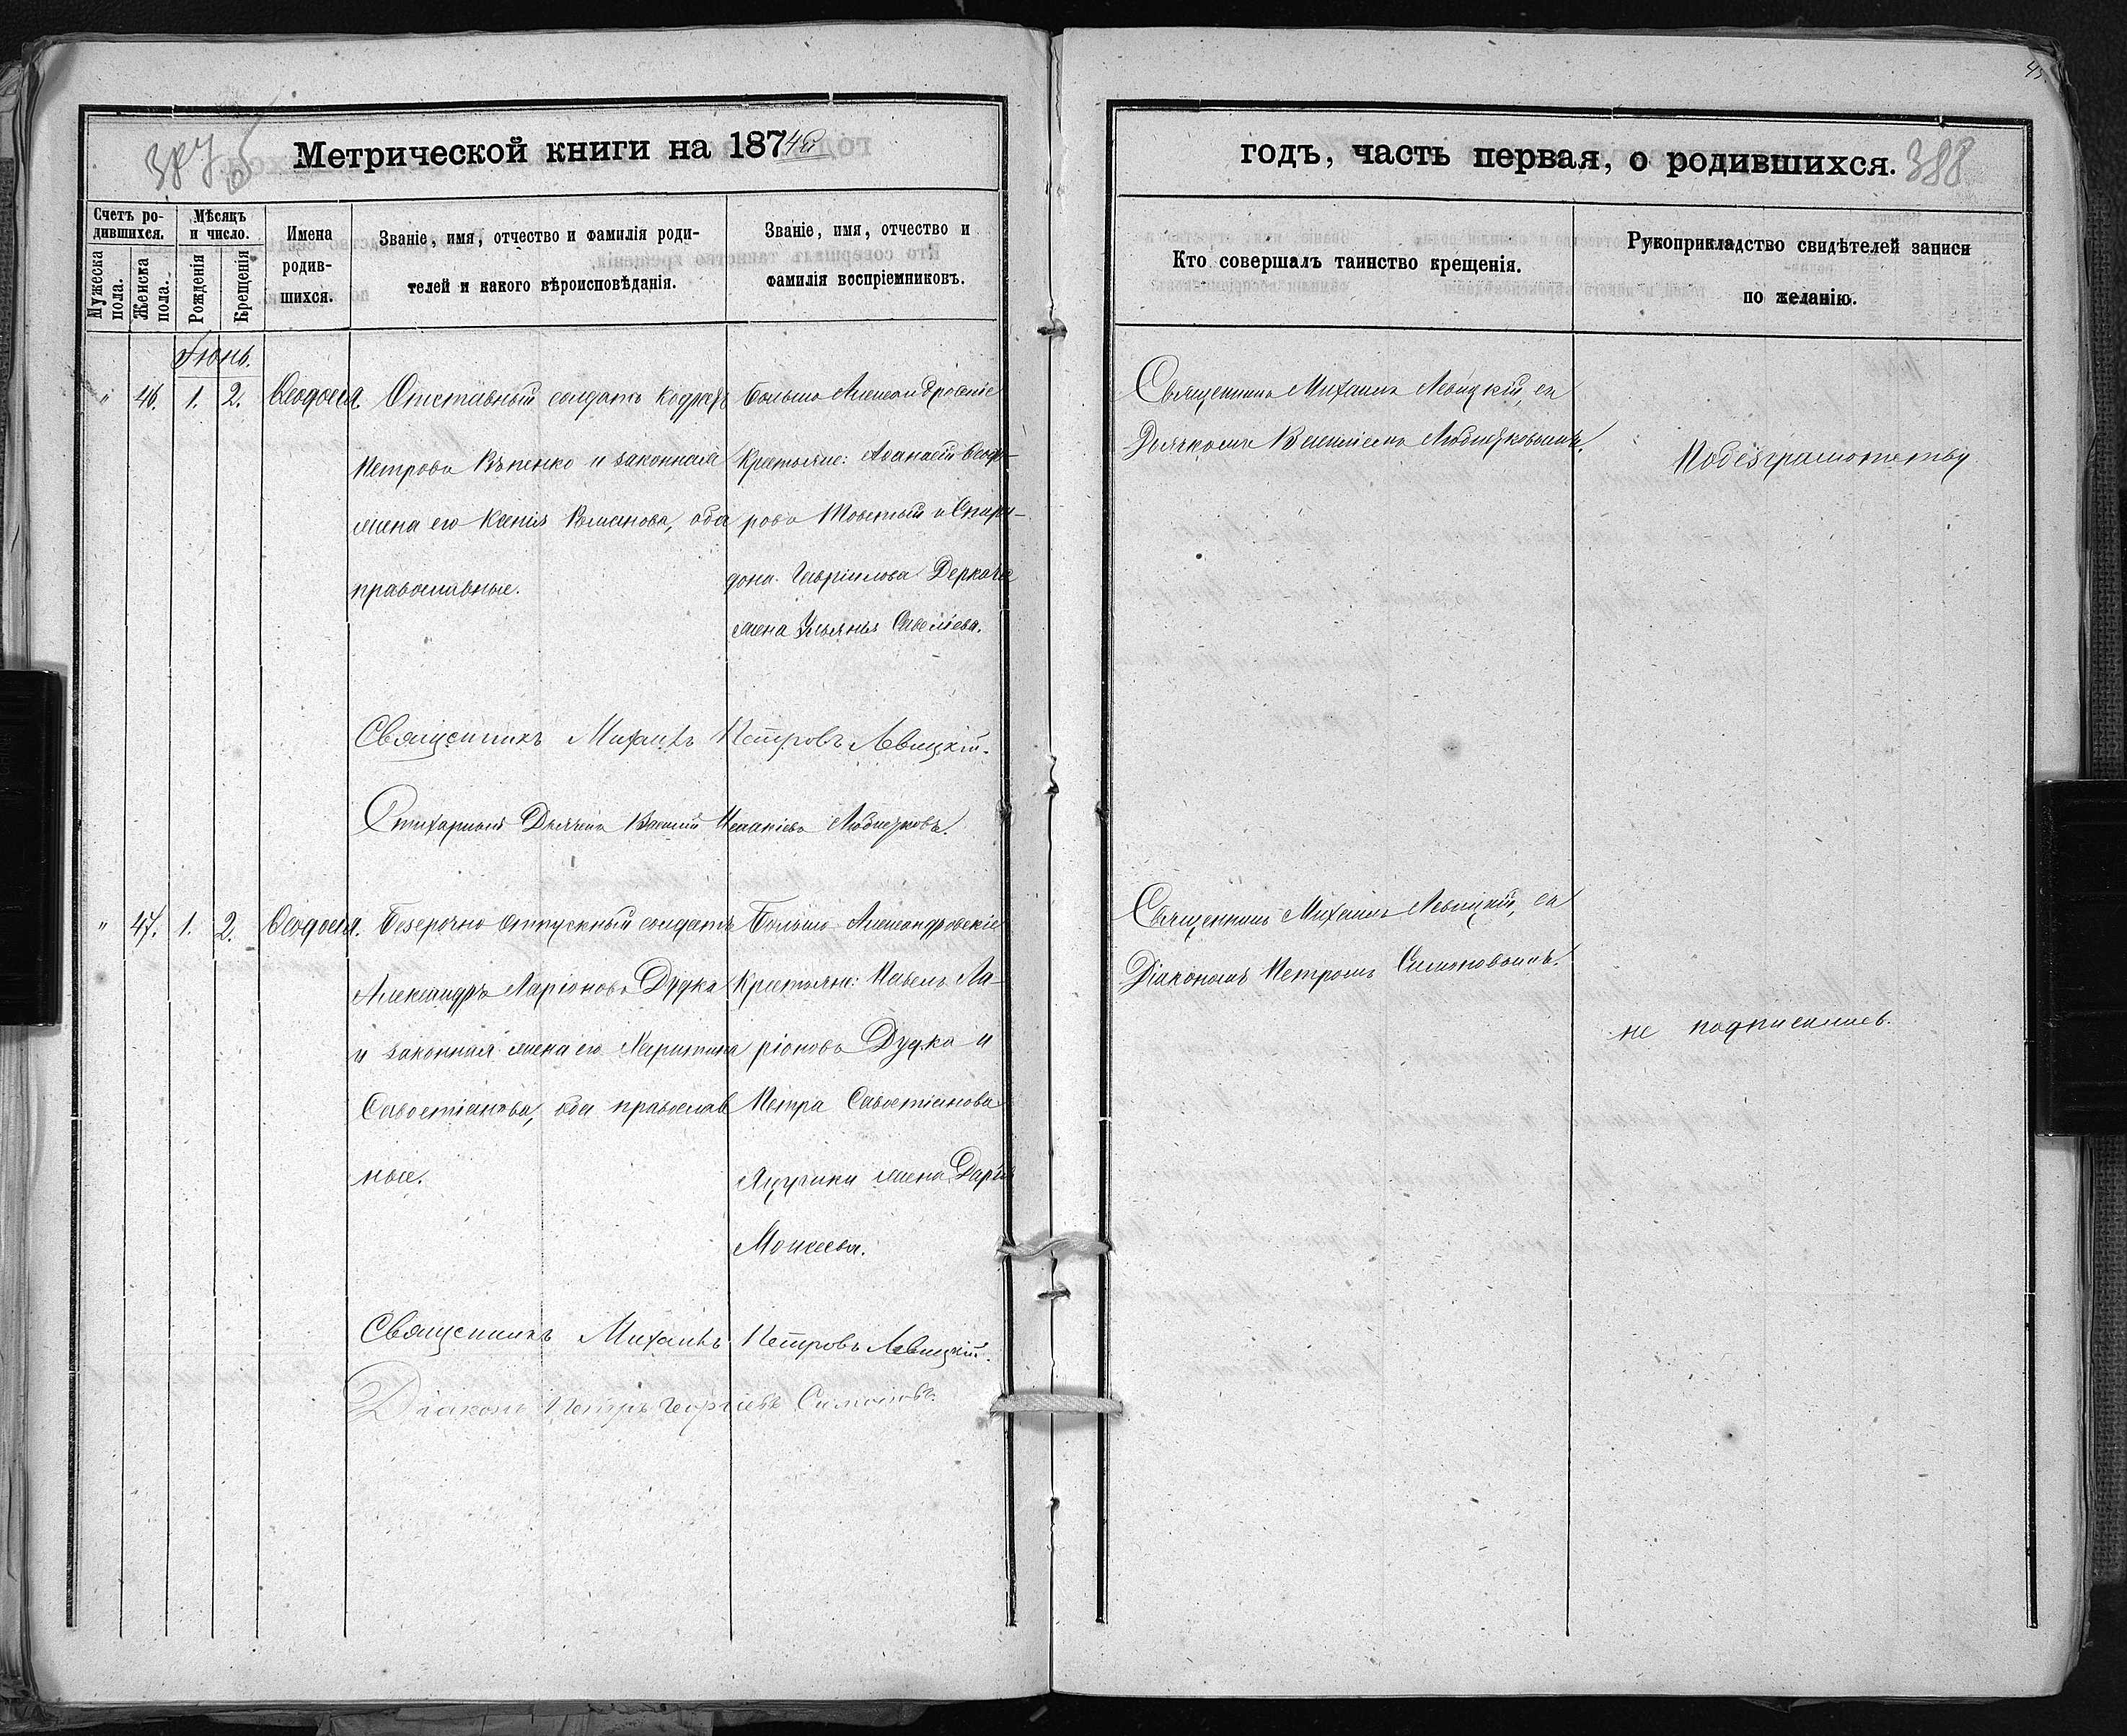 45.
387
Метрической книги на 1874й
годъ, часть первая, о родившихся. 388
Счетъ родившихся.
Мужеска пола.
Женска пола.
Мѣсяцъ и число.
Рожденія
Крещенія
Имена родившихся.
Званіе, имя, отчество и фамилія роди-
телей и какого вѣроисповѣданія.
Званіе, имя, отчество и
фамилія воспріемниковъ.
Кто совершалъ таинство крещенія.
Рукоприкладство свидѣтелей записи
по желанію.
Іюнь.
" 46. 1. 2. Ѳеодосія.
Отставный солдатъ
Петровъ Рѣпенко и законная
жена его Ксенія Романова, оба
православные.
Больше Александровскіе
Крестьяне: Аѳанасій Ѳеодо-
ровъ Товстый и Спири-
дона Гавріилова Деркача
жена Ульянія Савеліева.
Священникъ Михаилъ Левицкій, съ
Дьячкомъ Василіемъ
По безграмотству
Священникъ Михаилъ Петровъ Левицкій.
Стихарный Дьячекъ Василій
" 47. 1. 2. Ѳеодосія.
Безсрочно отпускный солдатъ
Александръ Ларіоновъ Дудка
и законная жена его Харитина
Савостіанова, оба православ
ные.
Больше Александровскіе
Крестьяне: Павелъ Ла-
ріоновъ Дудка и
Петра Савостіанова
жена Дарія
Моисеева.
Священникъ Михаилъ Левицкій, съ
Діакономъ Петромъ Симоновымъ.
не подписались.
Священникъ Михаилъ Петровъ Левицкій.
Діаконъ Петръ Георгіевъ Симоновъ.